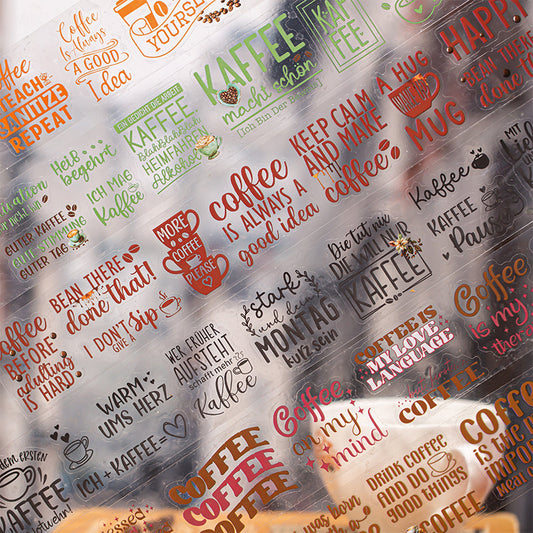 YOURSELF
Coffee
Is Always
A GOOD
Idea
Coffee
TEACH
SANITIZE
REPEAT
KAFFEE
macht schön
[Ich Bin Der Beweis]
KAF
FEE
HAPPY
BEEN THERE
done that
EIN GEDICHT DIE ARBEIT
KAFFEE
BlahBlahBlah
HEIMFAHRN
Alkohol
Heiß
begehrt
ICH MAG
Kaffee
GUTER KAFFEE
GUTE STIMMUNG
GUTER TAG
KEEP CALM
AND MAKE
coffee
A HUG
IN A
MUG
coffee
IS ALWAYS A
good idea
MORE
COFFEE
PLEASE
BEAN THERE
done that!
I DON'T
GIVE A
Sip
Coffee
BEFORE
adulting
IS HARD
Kaffee
KAFFEE
Pause
MIT
Die tut nix
DIE WILL NUR
KAFFEE
stark
und dein
MONTAG
kurz sein
WER FRÜHER
AUFSTEHT
schafft mehr
Kaffee
WARM
UMS HERZ
ICH + KAFFEE =
dem ersten
KAFFEE
Coffee
is my
COFFEE IS
MY LOVE
LANGUAGE
COFFEE
Coffee
on my
mind
COFFEE
COFFEE
COFFEE
COFFEE
IS THE
DRINK COFFEE
AND DO
good things
COFFEE